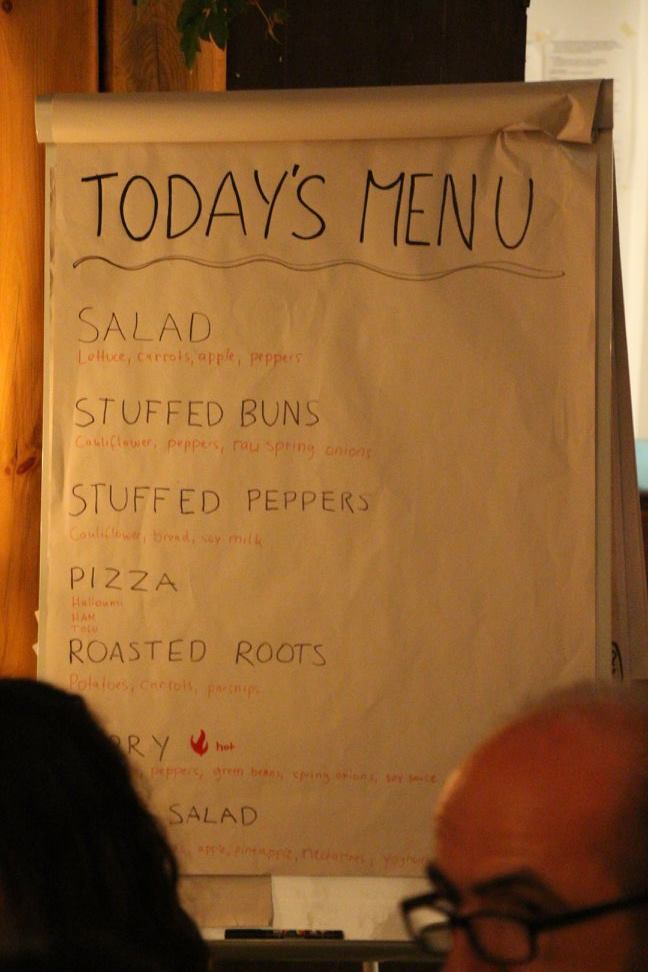 TODAY'S MENU
SALAD
Lettuce, carrots, apple, peppers
STUFFED BUNS
Cauliflower, peppers, raw spring onions
STUFFED PEPPERS
Cauliflower, bread, soy milk
PIZZA
Halloumi
HAM
TOFU
ROASTED ROOTS
Potatoes, carrots, parsnips
RRY hot
peppers, green beans, spring onions, soy sauce
SALAD
apple, pineapple, nectarines, yoghu